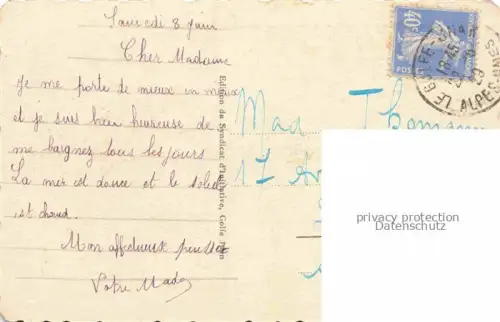 Samedi 8 Juin
Cher Madame
Je me porte de mieux en mieux
et je suis bien heureuse de
me baignez tous les jours
La mer est douce et le soleil
est chaud.
Mon affectueux
Votre Mado
Edition du Syndicat d'Initiative, Golfe Juan
40
POS
LE GOLFE
ALPES
Mad Thom
17
privacy protection
Datenschutz
www.oldthing.de